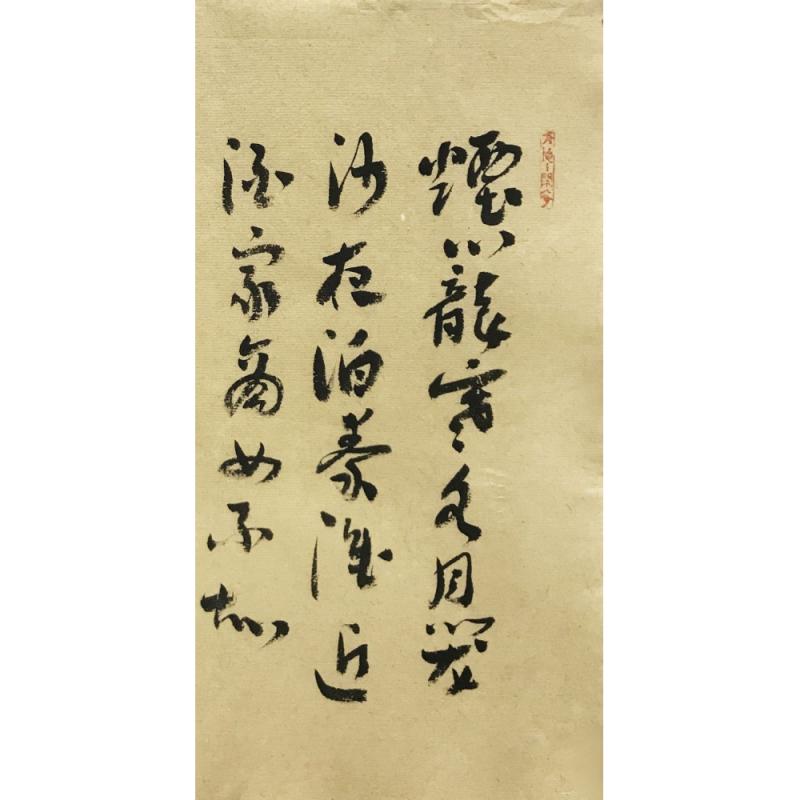 煙籠寒水月籠
沙夜泊秦淮近
酒家商女不知